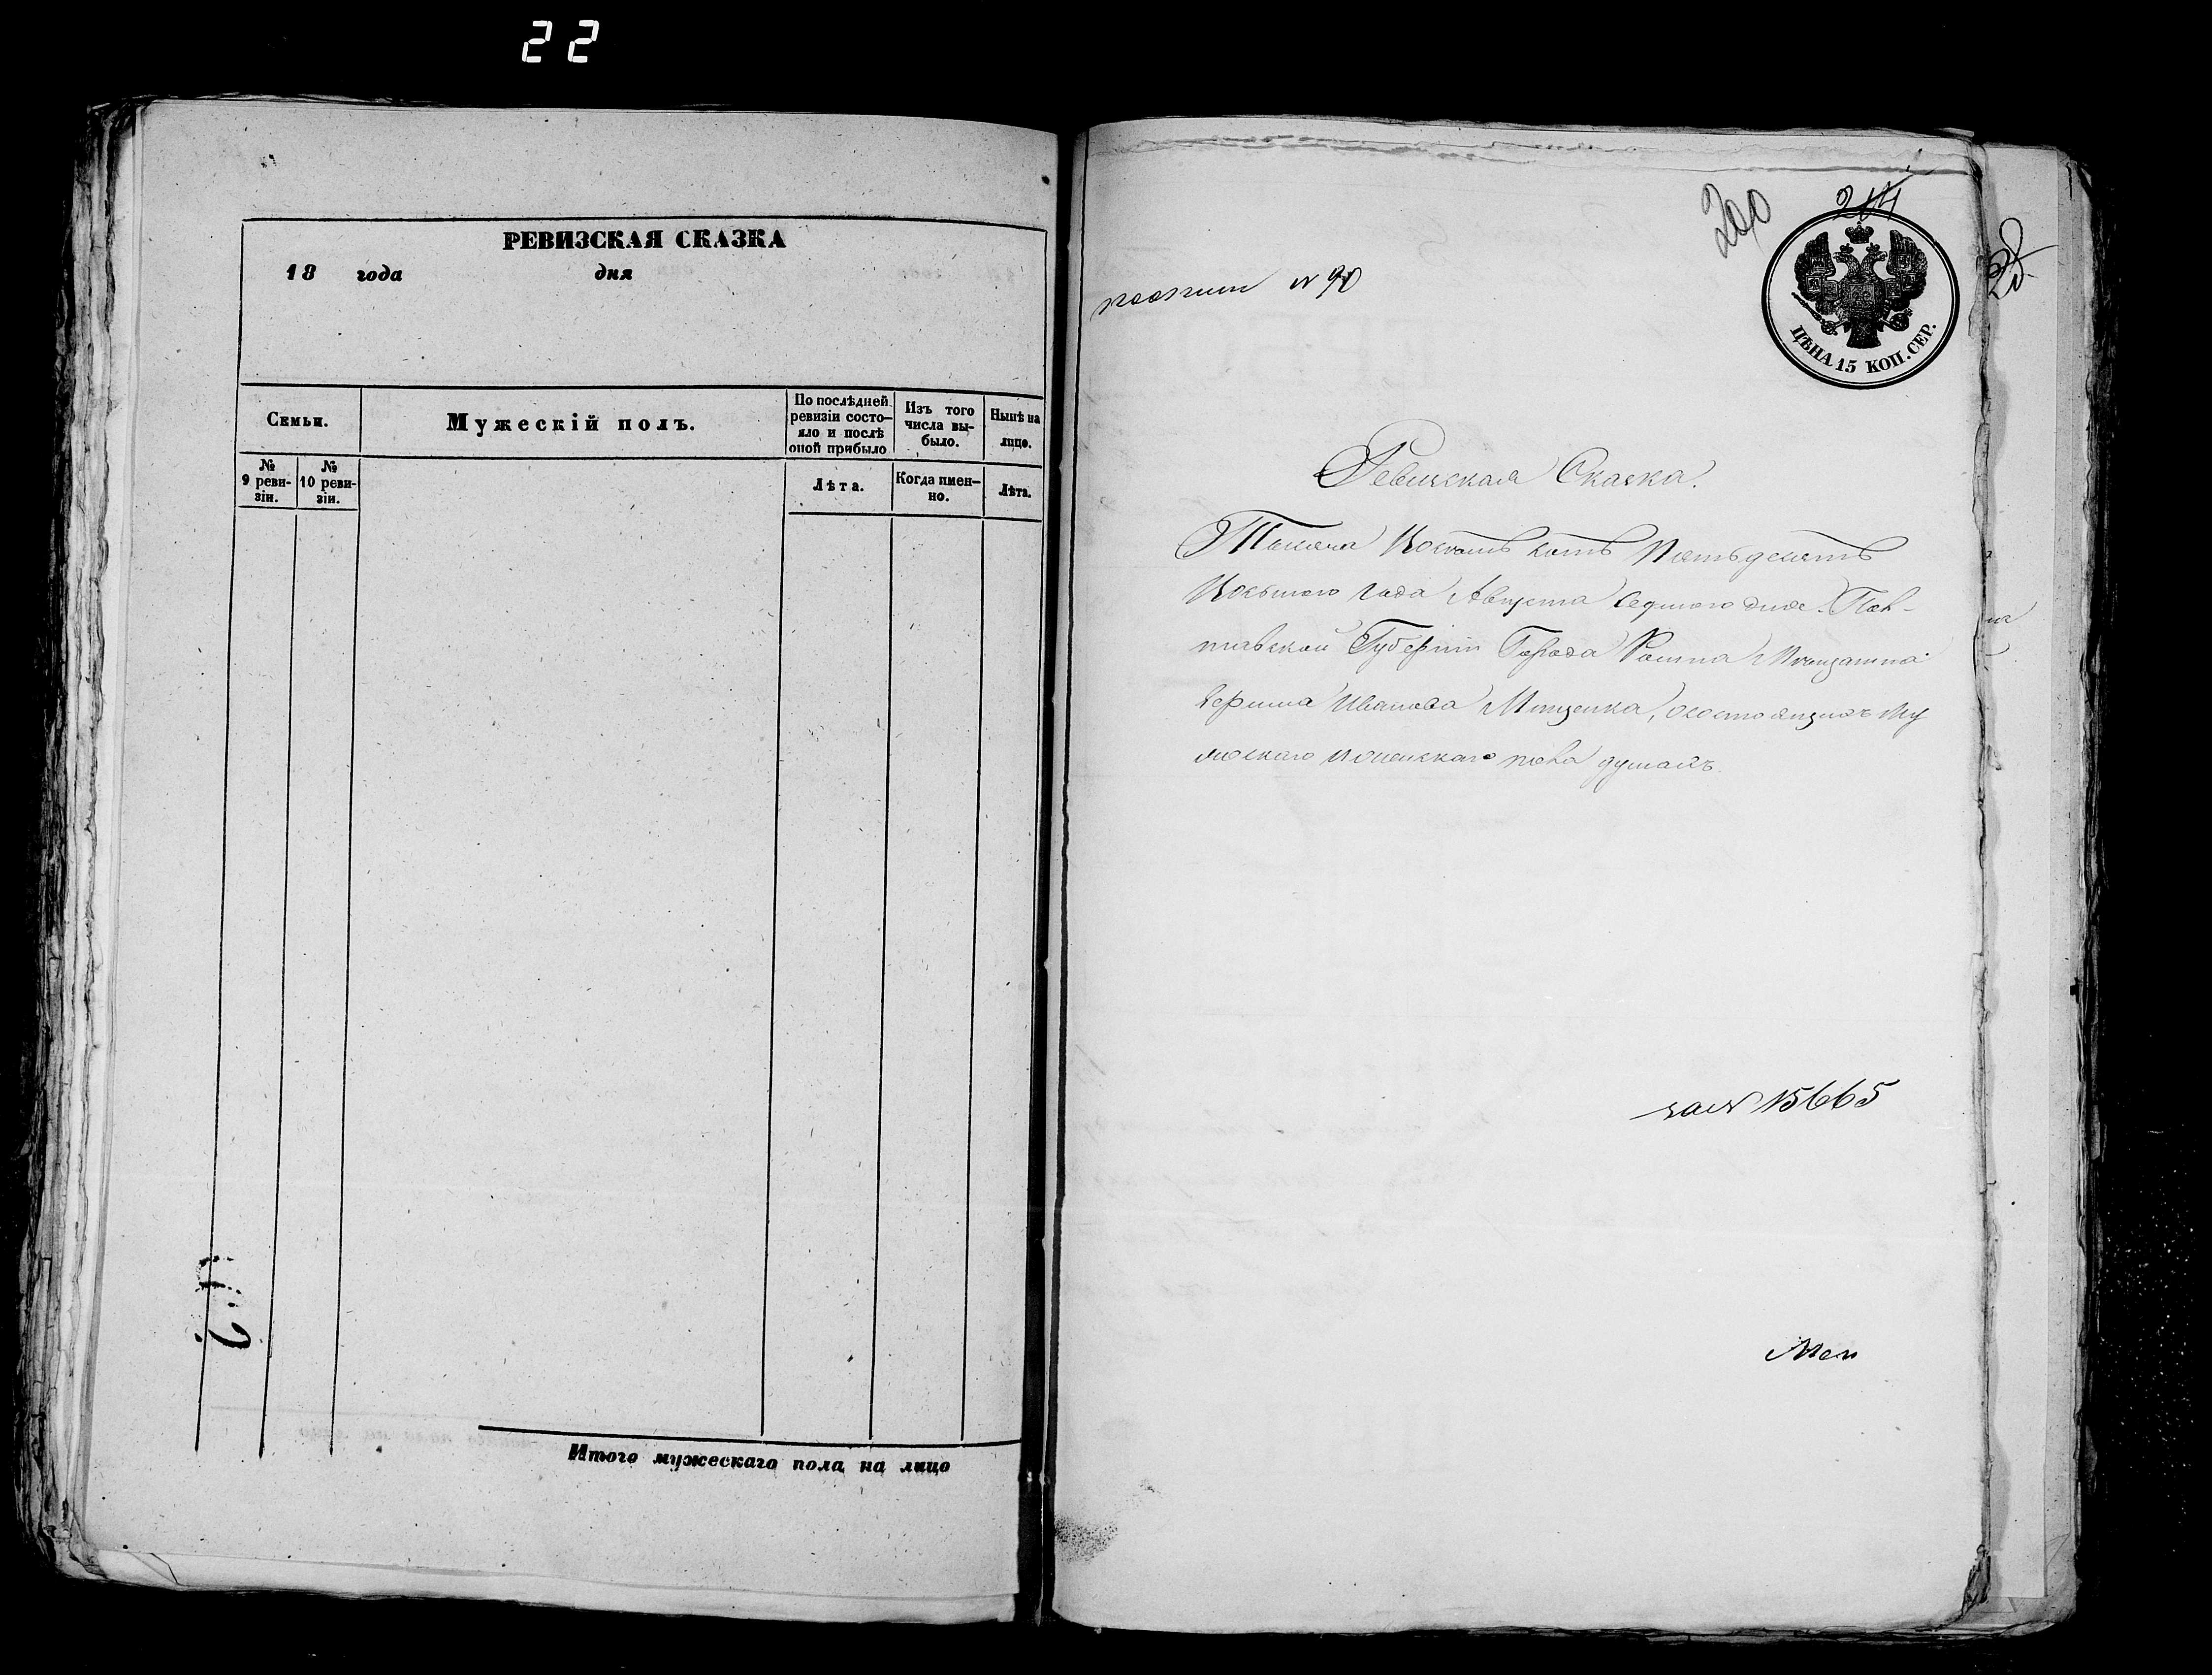 22
РЕВИЗСКАЯ СКАЗКА
18 года дня
Семьи.
Мужескій полъ.
По послѣдней ревизіи состо-
яло и послѣ
оной прибыло
Изъ того
числа вы-
было.
Нынѣ на
лицо.
№
9 реви-
зіи.
№
10 реви-
зіи.
Лѣта.
Когда имен-
но.
Лѣта.
Итого мужескаго пола на лицо
№ 90
200
214
ЦѢНА 15 КОП. СЕР.
Ревизская Сказка.
Тысяча Восемь сотъ Пятьдесятъ
Восьмого Года Августа Седмого дня. Пол-
тавской Губерніи Города Ромна Мещанина
Иванова Мищенка, о состоящихъ му
жескаго и женскаго пола душахъ.
15665